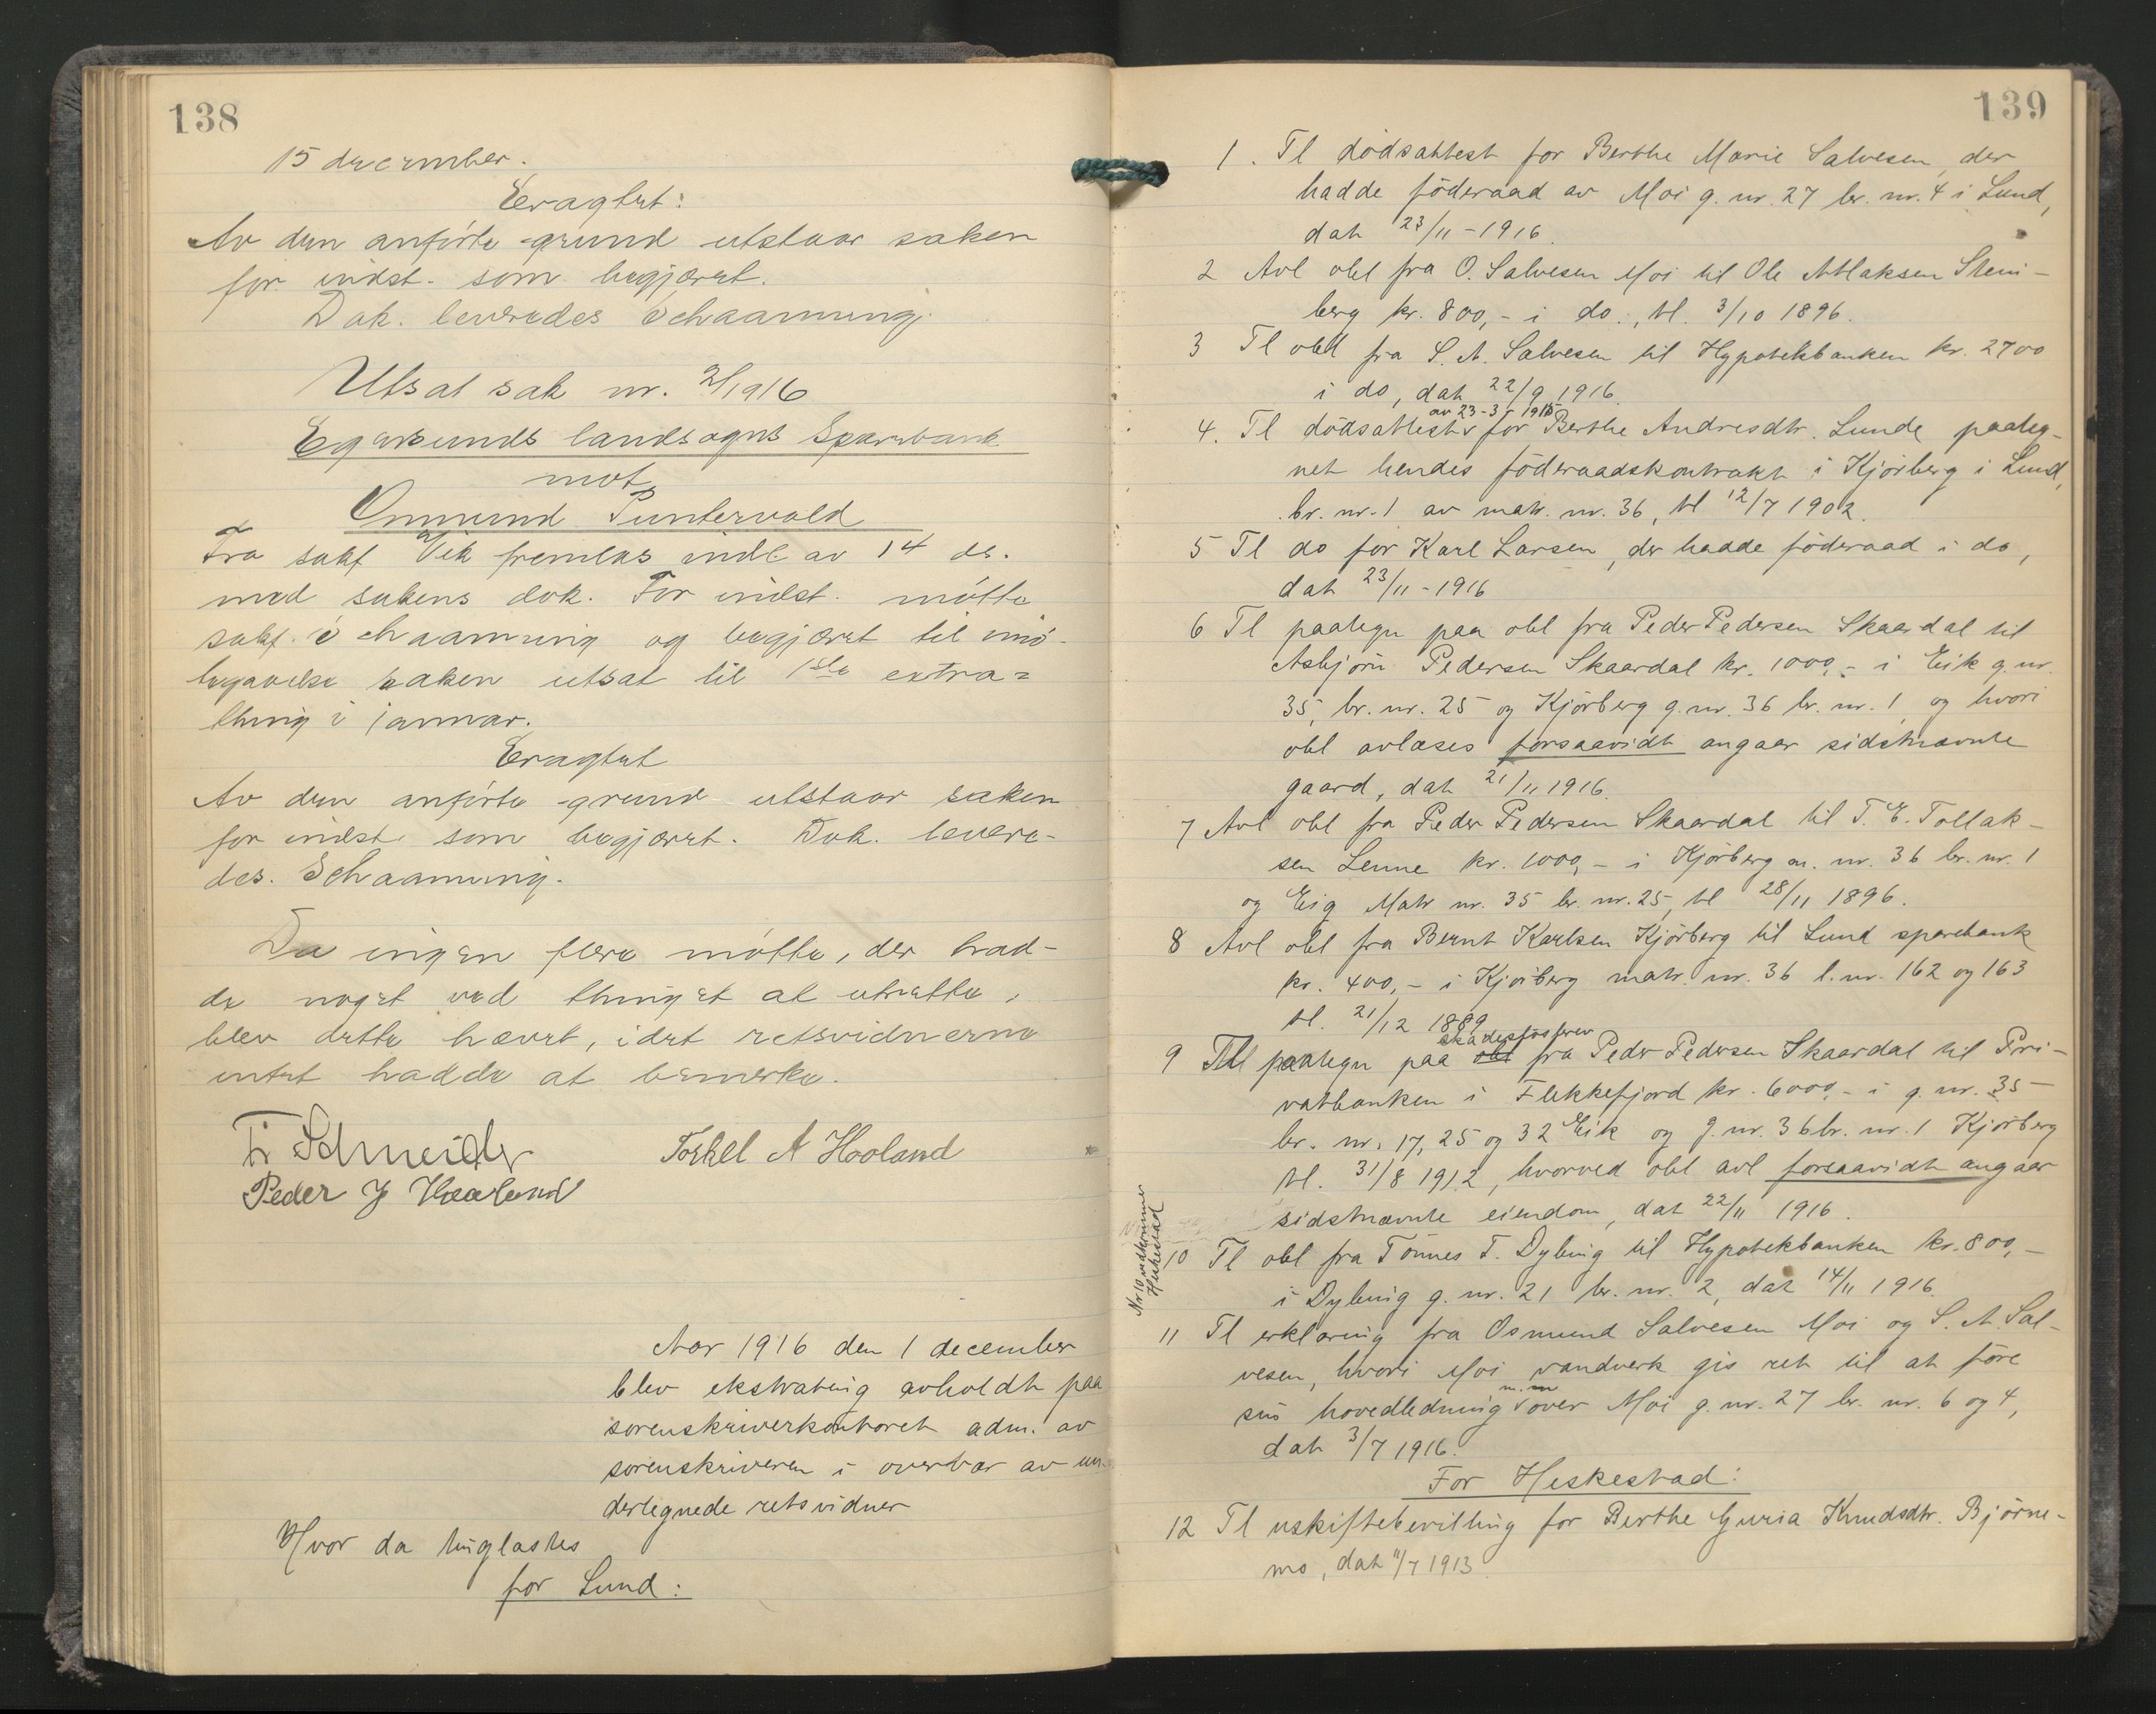 138
15 december.
Eragtet:
Av den anførte grund utstaar saken
for indst. som begjæret.
Dok. leveredes Schaanning.
Utsat sak nr. 2/1916
Egersunds landsogns Sparebank
mot
Ommund Puntervold
Fra sakf Vik fremlas indl av 14 ds.
med sakens dok. For indst. møtte
sakf. Schaanning og begjæret til imø-
tegaaelse saken utsat til 1ste extra=
thing i januar.
Eragtet
Av den anførte grund utstaar saken
for indst som begjæret. Dok. levere-
des. Schaanning.
Da ingen flere møtte, der had-
de noget ved thinget at utrette,
blev dette hævet, idet retsvidnerne
intet hadde at bemerke.
Fr Schneider Torkel A Hooland
Peder J Haaland
Aar 1916 den 1 december
blev ekstrating avholdt paa
sorenskriverkontoret adm. av
sorenskriveren i overvær av un-
dertegnede retsvidner
Hvor da tinglæstes
for Lund:
139
1. Tl dödsattest for Berthe Marie Salvesen, der
hadde föderaad av Moi g. nr. 27 br. nr. 4 i Lund,
dat 23/11-1916.
2 Avl obl fra O. Salvesen Moi til Ole Atlaksen Stein-
berg kr. 800,- i do., tl. 3/10 1896.
3 Tl obl fra S. A. Salvesen til Hypotekbanken kr. 2700
i do, dat 22/9 1916.
av 23-3-1915
4. Tl dödsattest for Berthe Andresdtr. Lunde paateg-
net hendes föderaadskontrakt i Kjörberg i Lund,
br. nr. 1 av matr. nr. 36, tl 12/7 1902.
5 Tl do for Karl Larsen, der hadde föderaad i do,
dat 23/11-1916
6 Tl paategn paa obl fra Peder Pedersen Skaardal til
Asbjörn Pedersen Skaardal kr. 1000,- i Eik g. nr.
35, br. nr. 25 og Kjörberg g. nr. 36 br. nr. 1, og hvori
obl avlæses forsaavidt angaar sidstnævnte
gaard, dat 21/11 1916.
7 Avl obl fra Peder Pedersen Skaardal til T. E. Tollak-
sen Lenne kr. 1000,- i Kjörberg m. nr. 36 br. nr. 1
og Eig Matr nr. 35 br. nr. 25, tl 28/11 1896.
8 Avl obl fra Bernt Karlsen Kjörberg til Lund sparebank
kr. 400,- i Kjörberg matr. nr. 36 l. nr. 162 og 163
tl. 21/12 1889
skadesløsbrev
9 Tl paategn paa obl fra Peder Pedersen Skaardal til Pri-
vatbanken i Flekkefjord kr. 6000,- i g. nr. 35
br. nr. 17, 25 og 32 Eik og g. nr. 36 br. nr. 1 Kjörberg
tl. 31/8 1912, hvorved obl avl forsaavidt angaar
sidstnævnte eiendom, dat 22/11 1916.
Nr 10 vedkommer
Heskestad
10 Tl obl fra Tönnes T. Dybing til Hypotekbanken kr. 800,-
i Dybing g. nr. 21 br. nr. 2, dat 14/11 1916.
11 Tl erklæring fra Osmund Salvesen Moi og S. A. Sal-
vesen, hvori Moi vandverk gis ret til at före
m. m
sin hovedledning over Moi g. nr. 27 br. nr. 6 og 4,
dat 3/7 1916.
For Heskestad:
12 Tl uskiftebevilling for Berthe Guria Knudsdtr. Björne-
mo, dat 11/7 1913.